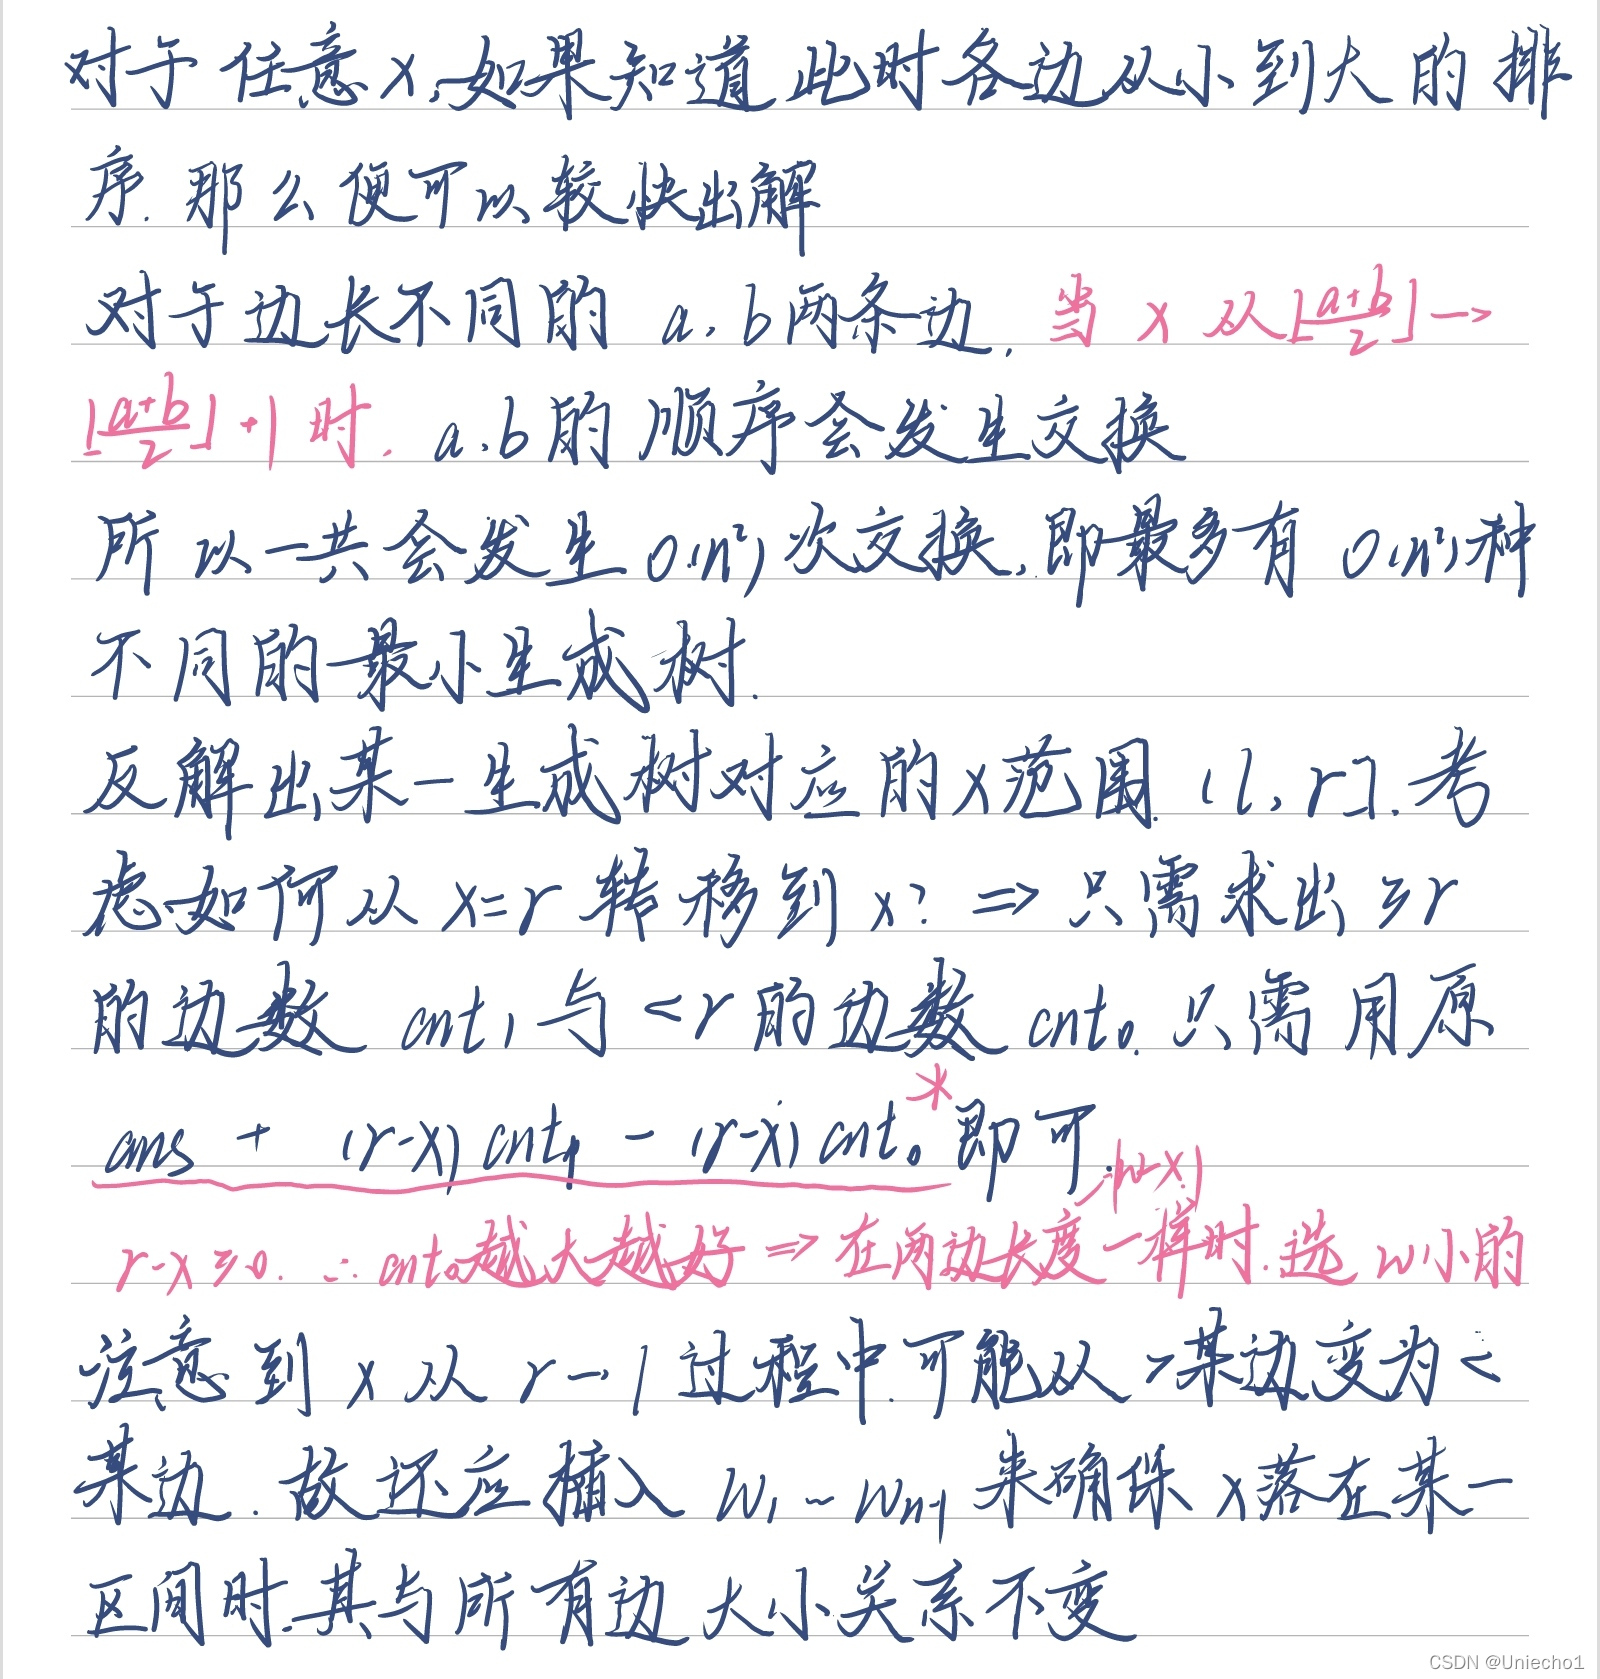 对于任意x,如果知道此时各边从小到大的排
序.那么便可以较快出解
对于边长不同的 a,b两条边,当 x 从⌊(a+b)/2⌋→
⌊(a+b)/2⌋+1时.a,b的顺序会发生交换
所以一共会发生O(n²)次交换,即最多有O(n²)种
不同的最小生成树.
反解出某一生成树对应的x范围.(l,r].考
虑如何从x=r转移到x?⇒只需求出≥r
的边数 cnt₁与<r的边数cnt₀.只需用原
ans + (r-x)cnt₁ - (r-x)cnt₀* 即可.
|w-x|
r-x≥0.∴cnt₀越大越好⇒在两边长度一样时.选w小的
注意到x从r→l过程中,可能从>某边变为<
某边.故还应插入w₁~wₙ₋₁来确保x落在某一
区间时,其与所有边大小关系不变
CSDN @Uniecho1